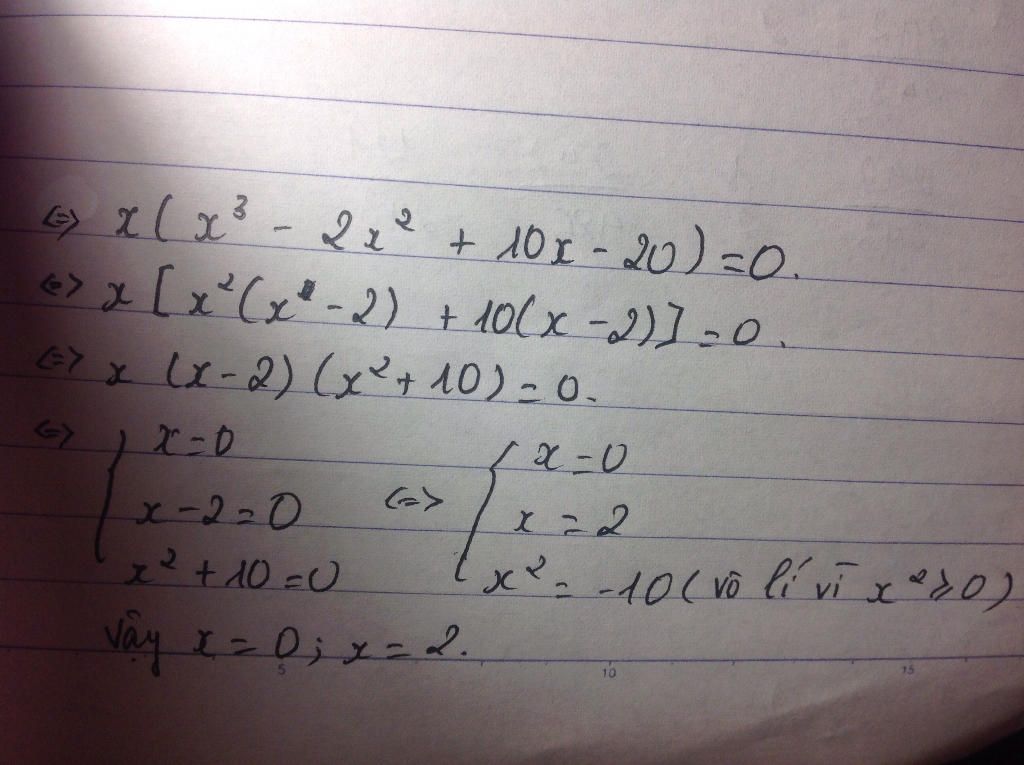 ⇔ x(x³ - 2x² + 10x - 20) = 0.
⇔ x[x²(x - 2) + 10(x - 2)] = 0.
⇔ x (x - 2) (x² + 10) = 0.
⇔ { x = 0
x - 2 = 0
x² + 10 = 0
⇔ { x = 0
x = 2
x² = -10 (vô lí vì x² ≥ 0)
Vậy x = 0; x = 2.
5 10 15